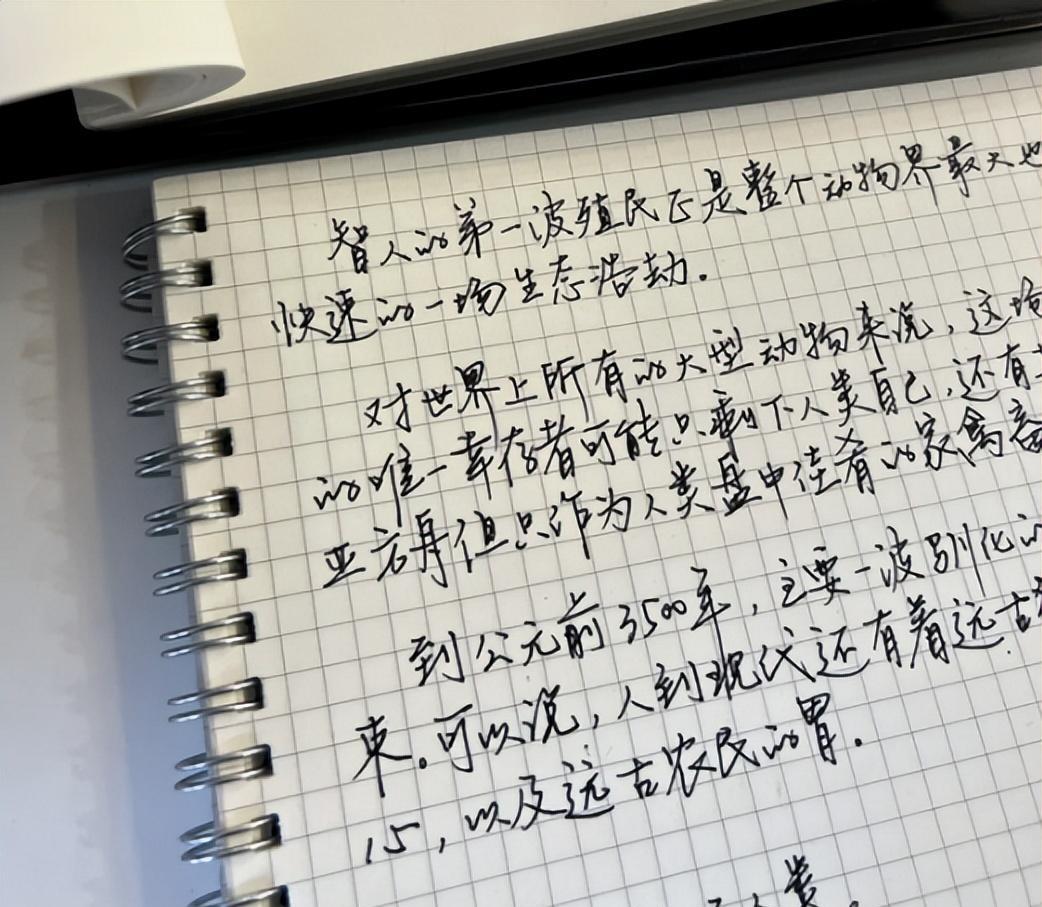 智人的第一波殖民正是整个动物界最大也
快速的一场生态浩劫.
对世界上所有的大型动物来说,这场
的唯一幸存者可能只剩下人类自己,还有
亚方舟但只作为人类盘中佳肴的家禽畜
到公元前3500年,主要一波驯化的
束。可以说,人到现代还有着远古
心,以及远古农民的胃.
人类